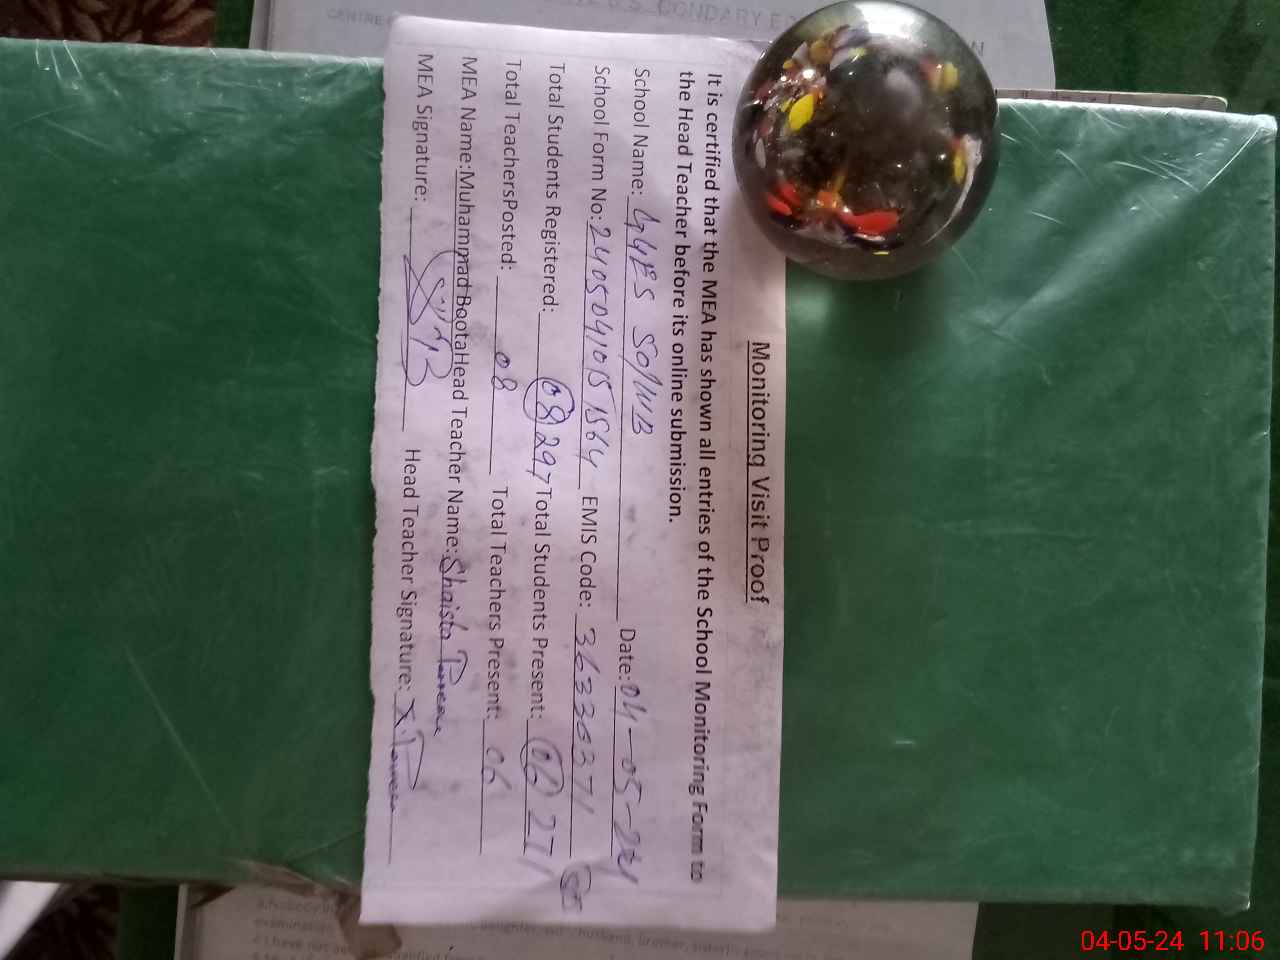 Monitoring Visit Proof
It is certified that the MEA has shown all entries of the School Monitoring Form to
the Head Teacher before its online submission.
School Name: GGES 50/WB Date: 04-05-24
School Form No: 2405041015 1564 EMIS Code: 36330371
Total Students Registered: 08 297 Total Students Present: 06 271
Total TeachersPosted: 08 Total Teachers Present: 06
MEA Name: Muhammad Boota Head Teacher Name: Shaista Parveen
MEA Signature: Head Teacher Signature:
04-05-24 11:06